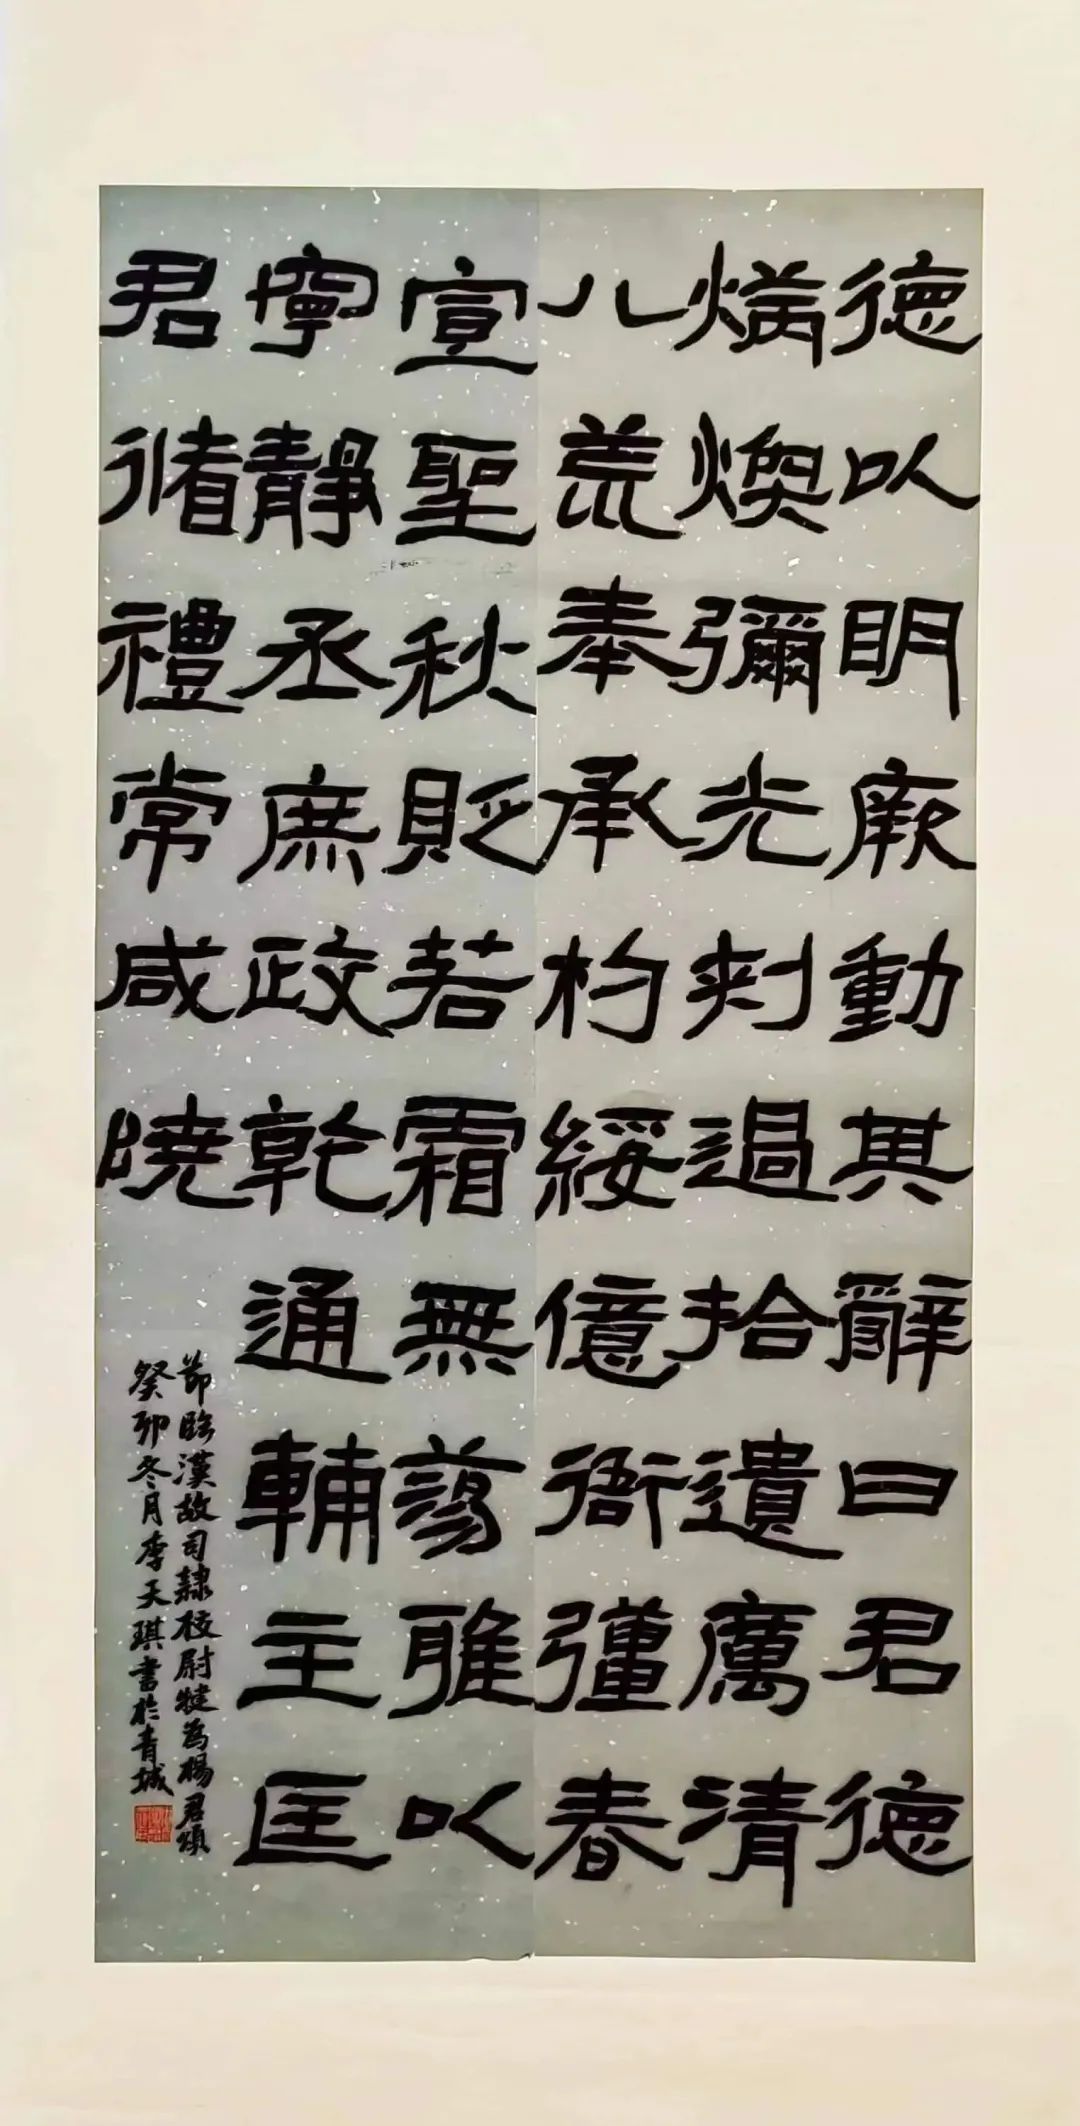 德以明厥動其辭曰君德
炳煥彌光刺過拾遺厲清
八荒奉承杓綏億衙彊春
宣聖秋貶若霜無蕩雅以
寧靜烝庶政乾通輔主匡
君循禮常咸曉
節臨漢故司隸校尉犍為楊君頌
癸卯冬月李天琪書於青城